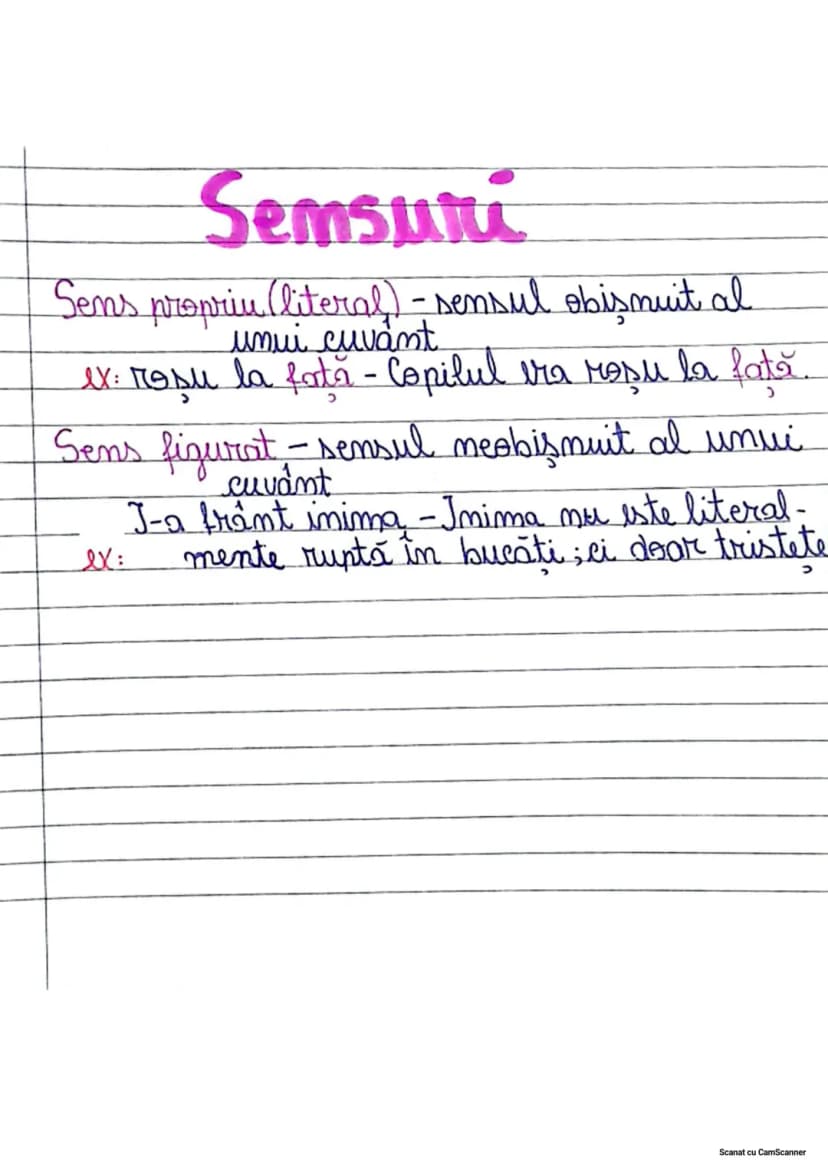 Sensuri
Sens propriu (literal) - sensul obișnuit al
unui cuvânt
ex: roșu la față - Copilul era roșu la față.
Sens figurat - sensul neobișnuit al unui
cuvânt
I-a frânt inima - Inima nu este literal-
ex: mente ruptă în bucăți; ci doar tristețe
Scanat cu CamScanner